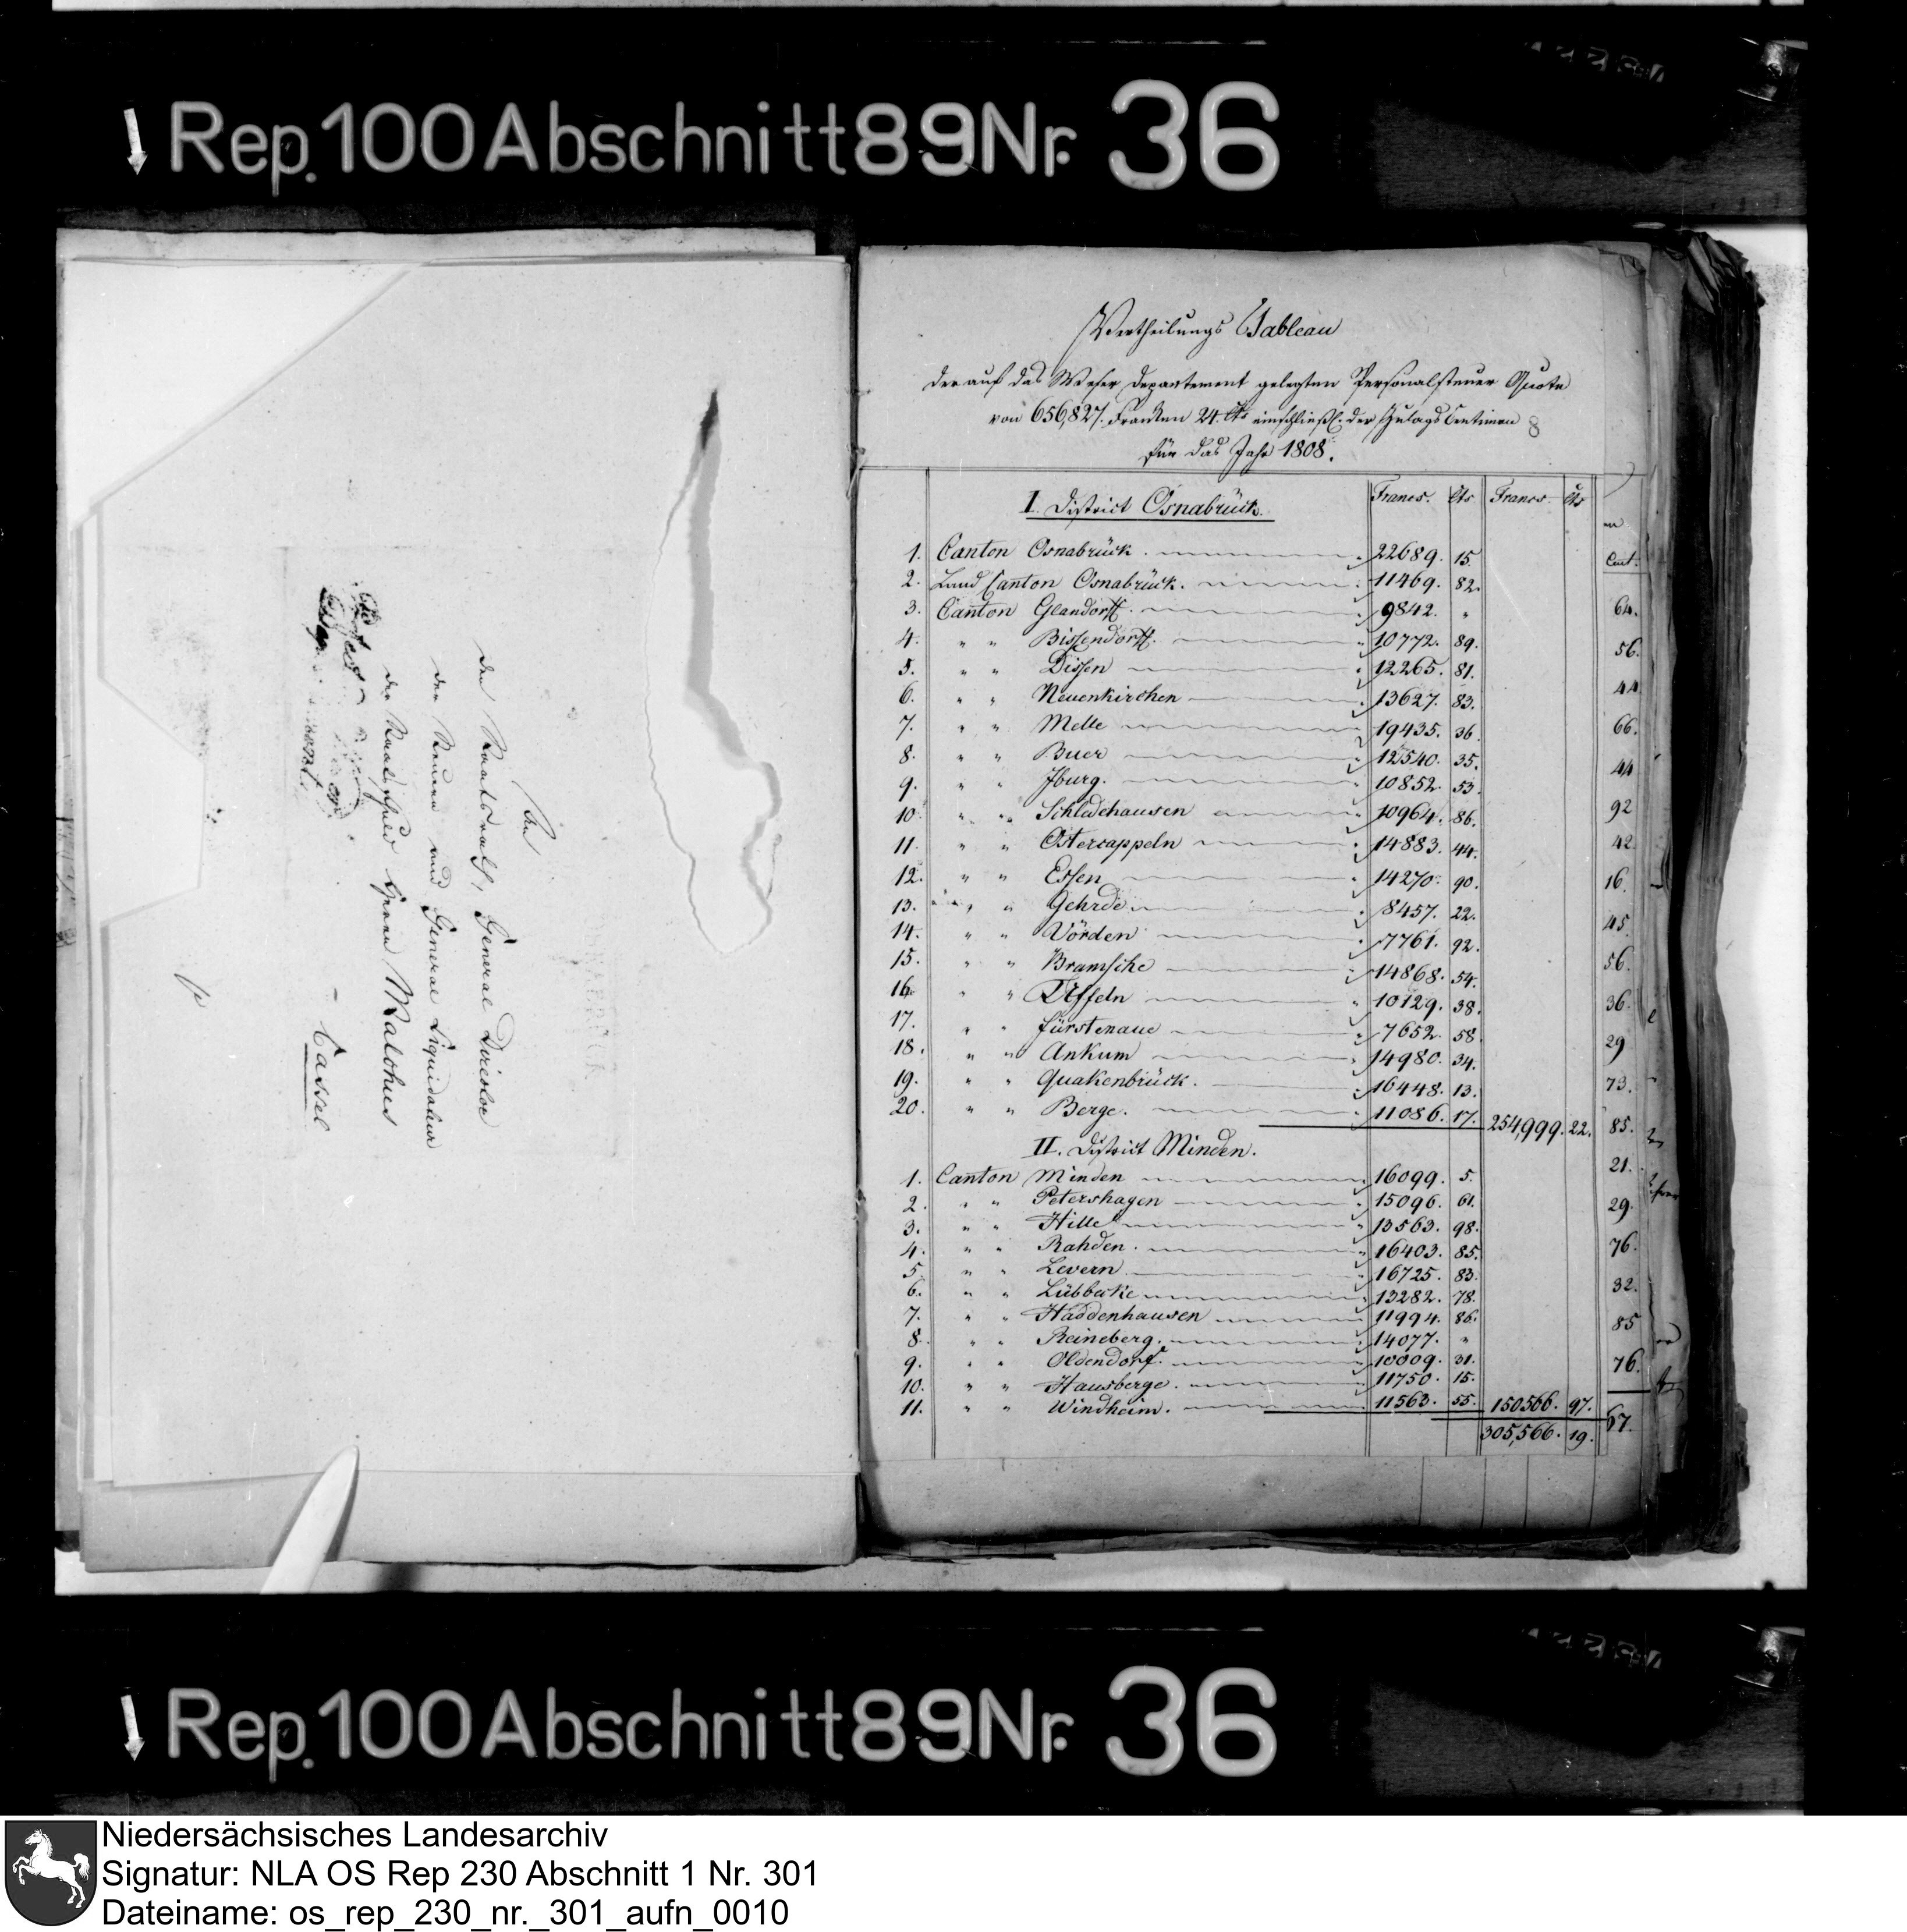 Rep. 100 Abschnitt 89 Nr. 36
An
den Staatsrath, General Director
der Steuern und General Liquidateur
der Staatsschuld Herrn Malchus
Cassel
Vertheilungs Tableau
der auf das Weser Departement gelegten Personalsteuer Quote
von 656,827. Franken 24. Cts einschließl. der Zulags Centimen
für das Jahr 1808.
8
I. District Osnabrück. Francs. Cts Francs. Cts
1. Canton Osnabrück. 22689. 15.
2. Land Canton Osnabrück. 11469. 82.
3. Canton Glandorff. 9842. "
4. " " Bissendorff. 10772. 89.
5. " " Dissen 12265. 81.
6. " " Neuenkirchen 13627. 83.
7. " " Melle 19435. 36.
8. " " Buer 12540. 35.
9. " " Iburg. 10852. 53.
10. " " Schledehausen 10964. 86.
11. " " Ostercappeln 14883. 44.
12. " " Essen 14270. 90.
13. " " Gehrde 8457. 22.
14. " " Vörden 7761. 92.
15. " " Bramsche 14868. 54.
16. " " Uffeln 10129. 38.
17. " " Fürstenaue 7652. 58.
18. " " Ankum 14980. 34.
19. " " Quakenbrück. 16448. 13.
20. " " Berge. 11086. 17. 254,999. 22.
II. District Minden.
1. Canton Minden 16099. 5.
2. " " Petershagen 15096. 61.
3. " " Hille 13563. 98.
4. " " Rahden. 16403. 85.
5. " " Levern 16725. 83.
6. " " Lübbecke 13282. 78.
7. " " Haddenhausen 11994. 86.
8. " " Reineberg. 14077. "
9. " " Oldendorf. 10009. 31.
10. " " Hausberge. 11750. 15.
11. " " Windheim. 11563. 55. 150566. 97.
305,566. 19.
Cent.
64.
56.
44
66.
44
92
42
16.
45.
56.
36.
29
73.
85.
21.
29.
76.
32.
85
76.
67.
Rep. 100 Abschnitt 89 Nr. 36
Niedersächsisches Landesarchiv
Signatur: NLA OS Rep 230 Abschnitt 1 Nr. 301
Dateiname: os_rep_230_nr._301_aufn_0010